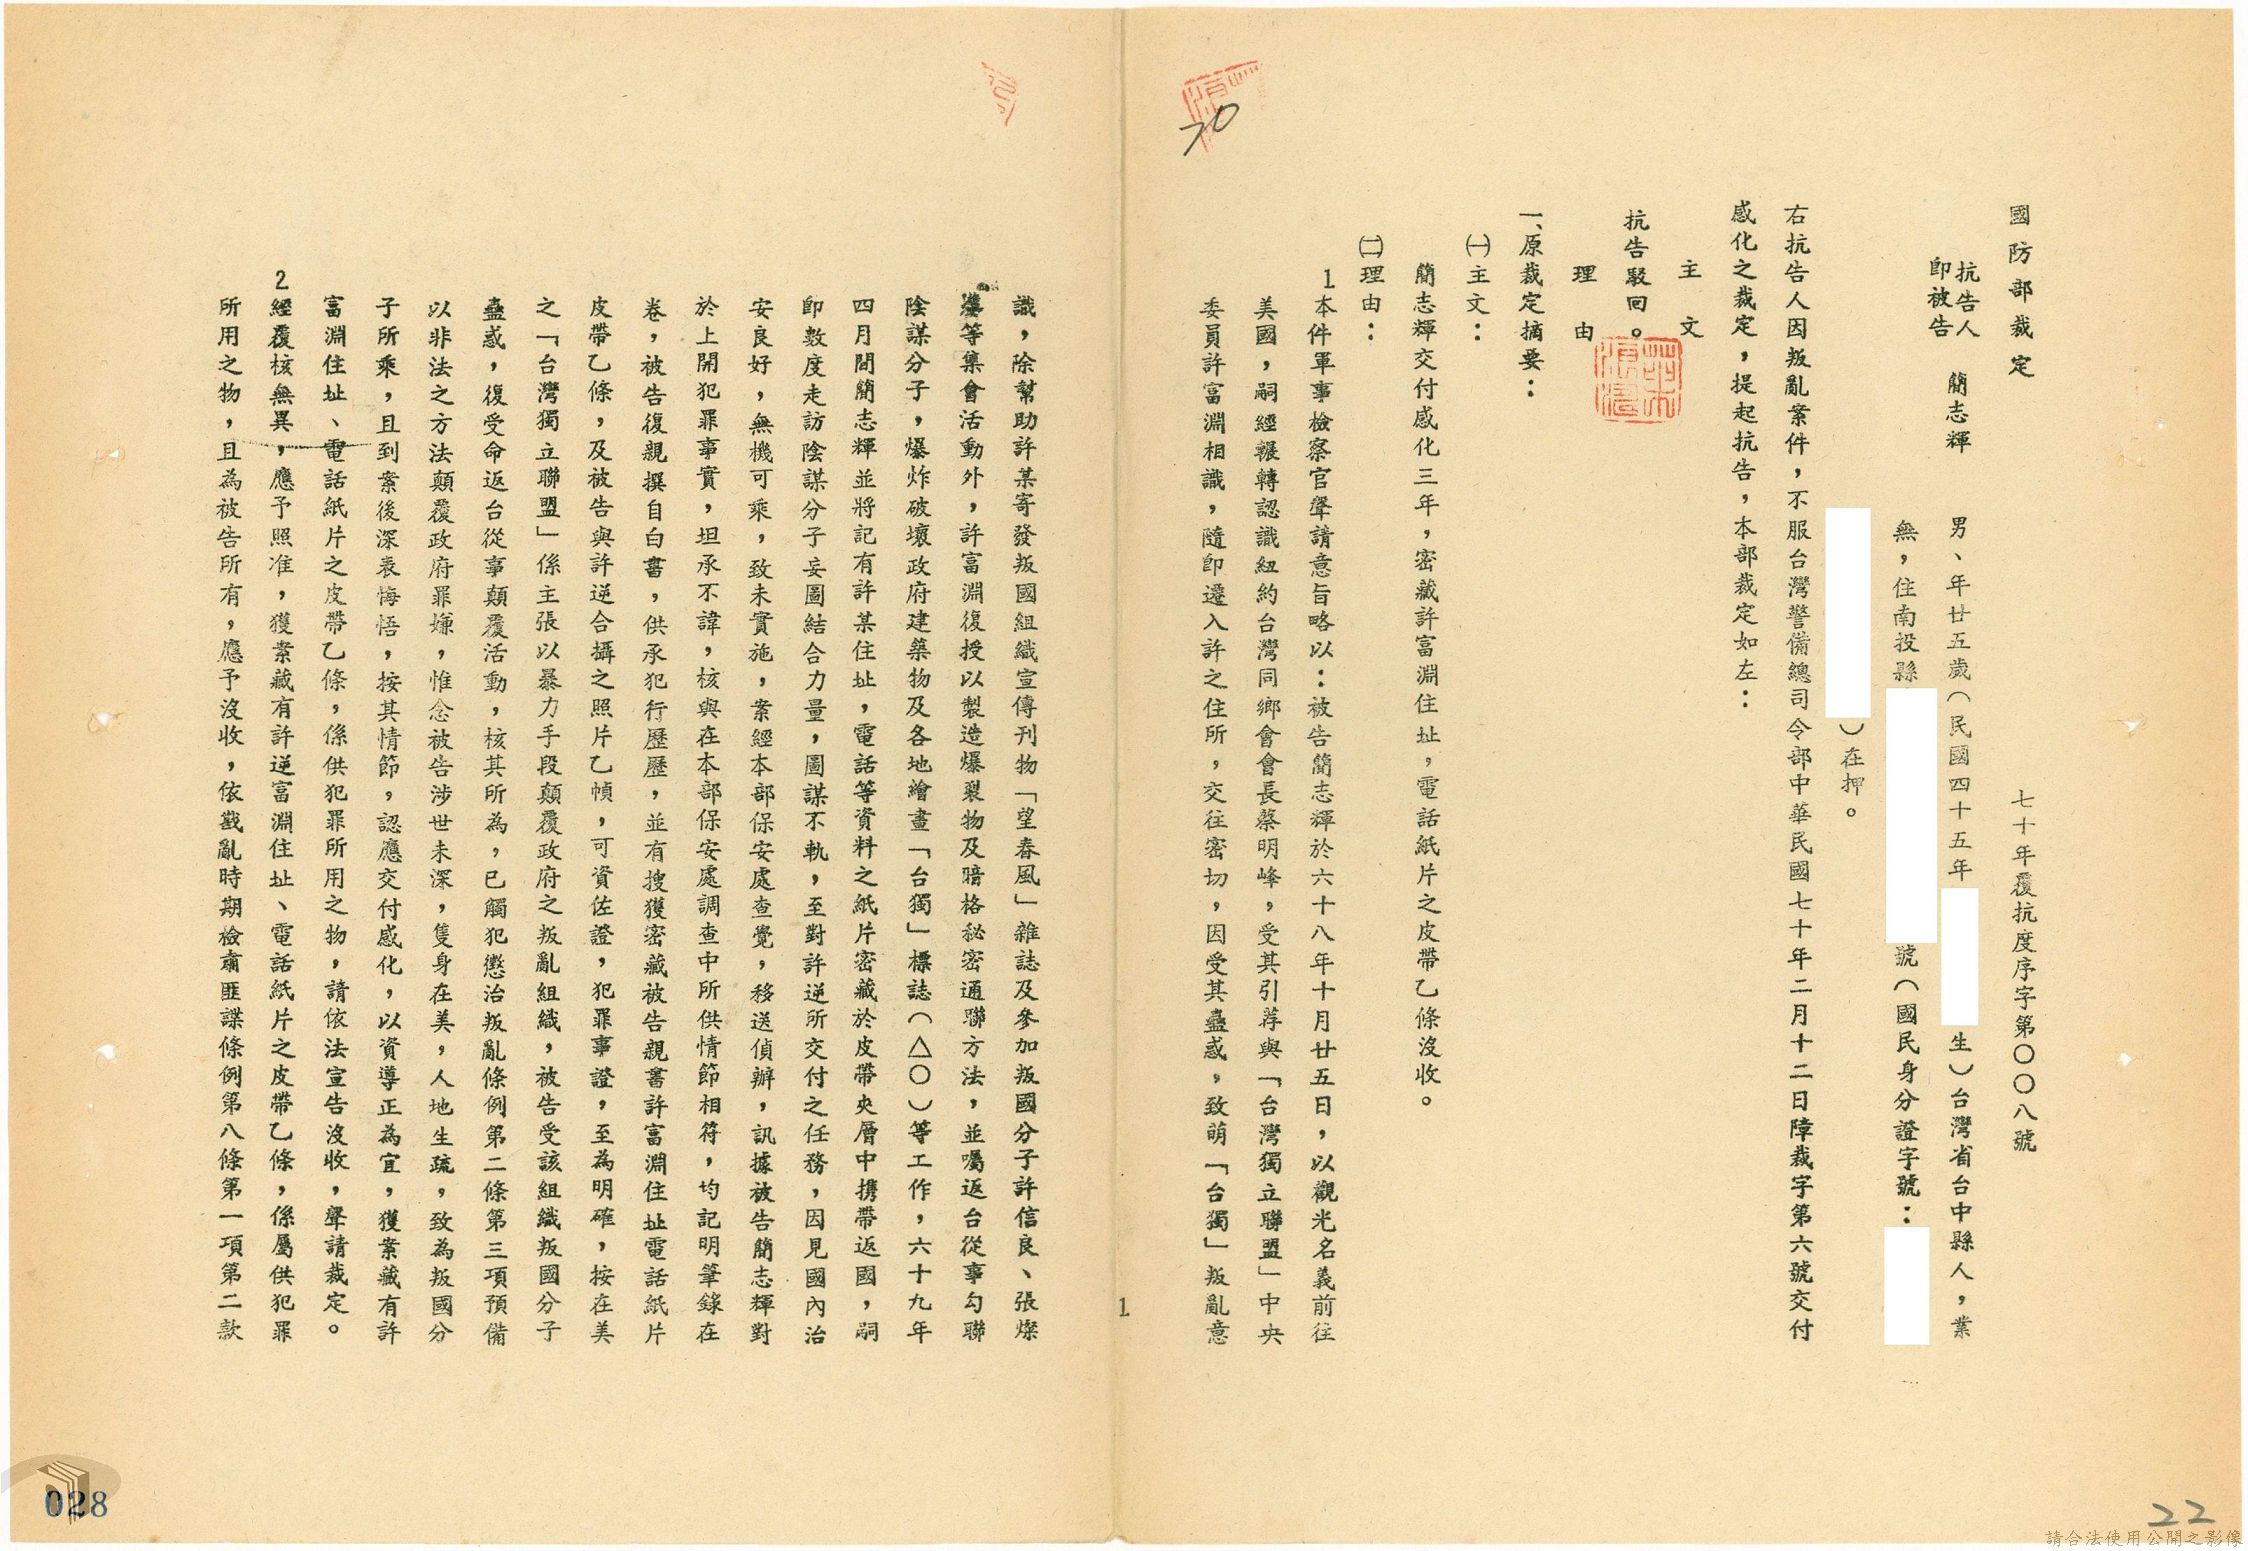 國防部裁定
七十年覆抗度序字第〇〇八號
抗告人
即被告
簡志輝
男、年廿五歲（民國四十五年
生）台灣省台中縣人，業
無，住南投縣
號（國民身分證字號：
）在押。
右抗告人因叛亂案件，不服台灣警備總司令部中華民國七十年二月十二日障裁字第六號交付
感化之裁定，提起抗告，本部裁定如左：
主文
抗告駁回。
理由
一、原裁定摘要：
㈠主文：
簡志輝交付感化三年，密藏許富淵住址，電話紙片之皮帶乙條沒收。
㈡理由：
1本件軍事檢察官聲請意旨略以：被告簡志輝於六十八年十月廿五日，以觀光名義前往
美國，嗣經輾轉認識紐約台灣同鄉會會長蔡明峰，受其引荐與「台灣獨立聯盟」中央
委員許富淵相識，隨即遷入許之住所，交往密切，因受其蠱惑，致萌「台獨」叛亂意
識，除幫助許某寄發叛國組織宣傳刊物「望春風」雜誌及參加叛國分子許信良、張燦
鍙等集會活動外，許富淵復授以製造爆裂物及暗格秘密通聯方法，並囑返台從事勾聯
陰謀分子，爆炸破壞政府建築物及各地繪畫「台獨」標誌（△〇）等工作，六十九年
四月間簡志輝並將記有許某住址，電話等資料之紙片密藏於皮帶夾層中携帶返國，嗣
即數度走訪陰謀分子妄圖結合力量，圖謀不軌，至對許逆所交付之任務，因見國內治
安良好，無機可乘，致未實施，案經本部保安處查覺，移送偵辦，訊據被告簡志輝對
於上開犯罪事實，坦承不諱，核與在本部保安處調查中所供情節相符，均記明筆錄在
卷，被告復親撰自白書，供承犯行歷歷，並有搜獲密藏被告親書許富淵住址電話紙片
皮帶乙條，及被告與許逆合攝之照片乙幀，可資佐證，犯罪事證，至為明確，按在美
之「台灣獨立聯盟」係主張以暴力手段顛覆政府之叛亂組織，被告受該組織叛國分子
蠱惑，復受命返台從事顛覆活動，核其所為，已觸犯懲治叛亂條例第二條第三項預備
以非法之方法顛覆政府罪嫌，惟念被告涉世未深，隻身在美，人地生疏，致為叛國分
子所乘，且到案後深表悔悟，按其情節，認應交付感化，以資導正為宜，獲案藏有許
富淵住址、電話紙片之皮帶乙條，係供犯罪所用之物，請依法宣告沒收，聲請裁定。
2經覆核無異，應予照准，獲案藏有許逆富淵住址、電話紙片之皮帶乙條，係屬供犯罪
所用之物，且為被告所有，應予沒收，依戡亂時期檢肅匪諜條例第八條第一項第二款
1
70
22
028
請合法使用公開之影像